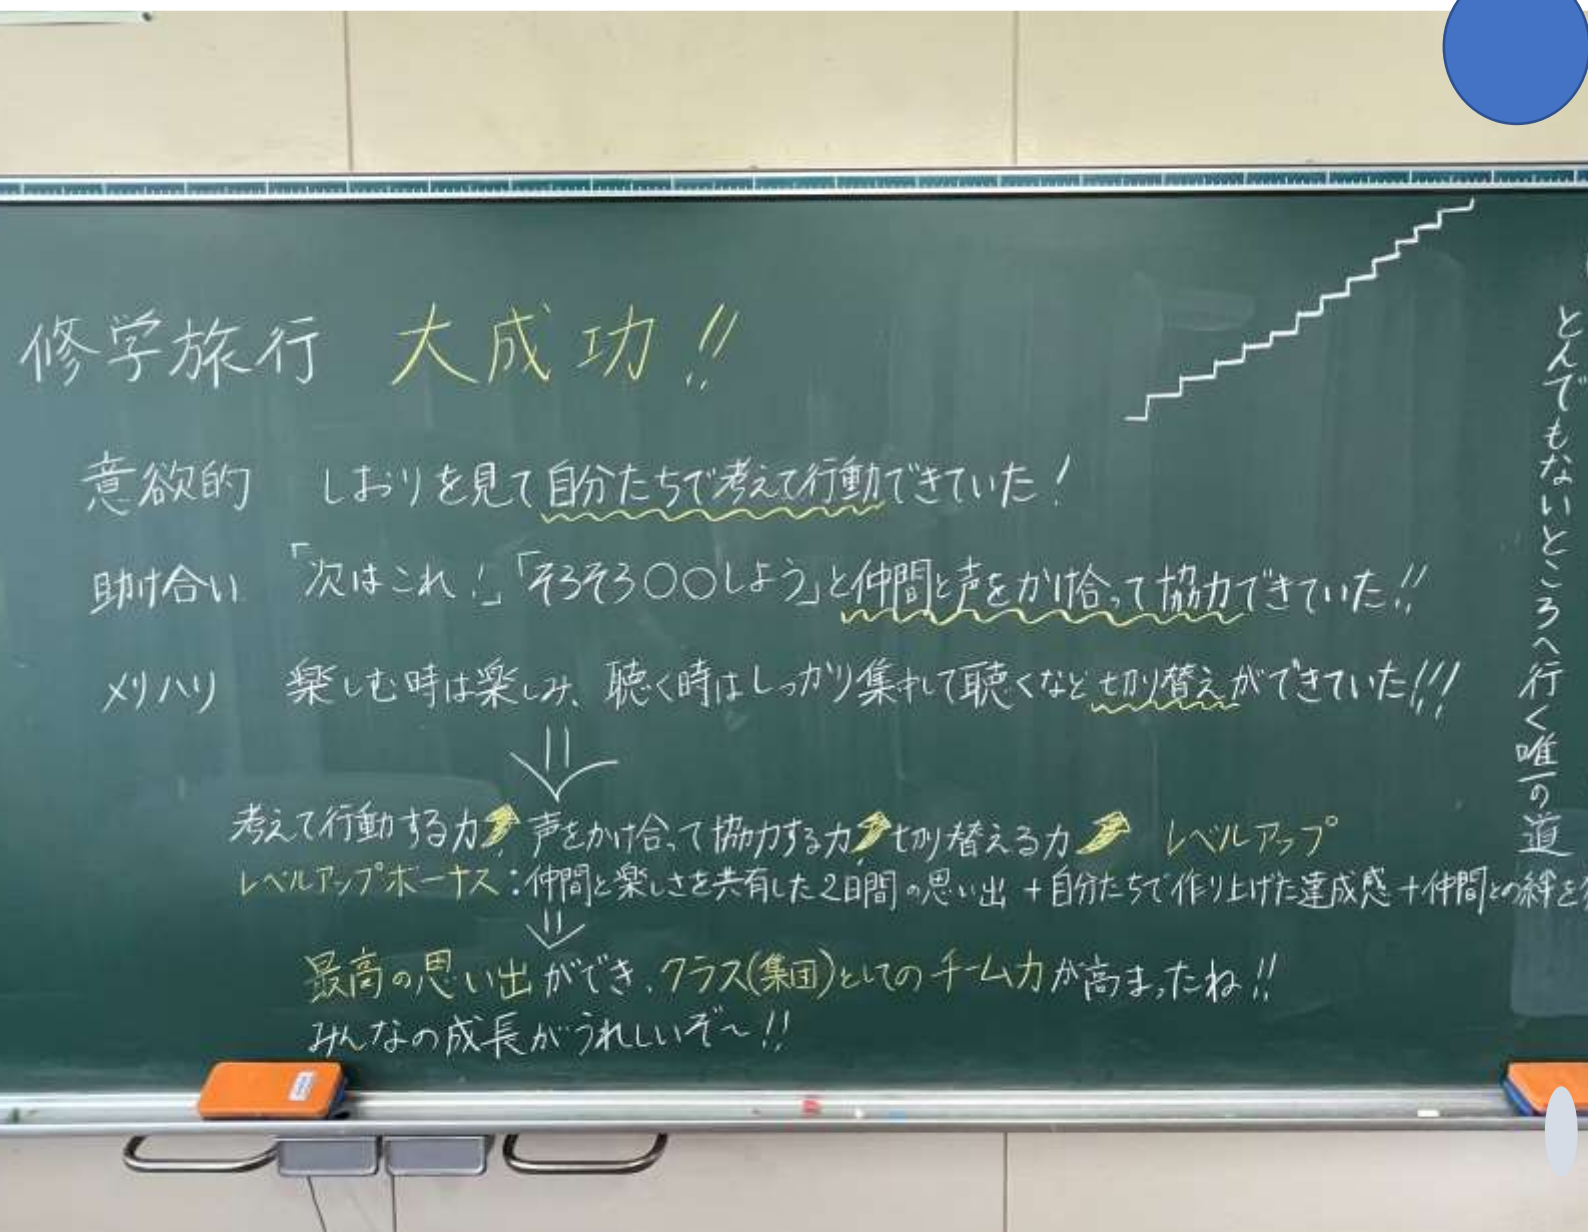 修学旅行 大成功!!
意欲的 しおりを見て自分たちで考えて行動できていた!
助け合い 「次はこれ!」「そろそろ〇〇しよう」と仲間と声をかけ合って協力できていた!!
メリハリ 楽しむ時は楽しみ、聴く時はしっかり集中して聴くなど切り替えができていた!!!
考えて行動する力 声をかけ合って協力する力 切り替える力 レベルアップ
レベルアップボーナス:仲間と楽しさを共有した2日間の思い出+自分たちで作り上げた達成感+仲間との絆を
最高の思い出ができ、クラス(集団)としてのチーム力が高まったね!!
みんなの成長がうれしいぞ~!!
とんでもないところへ行く唯一の道